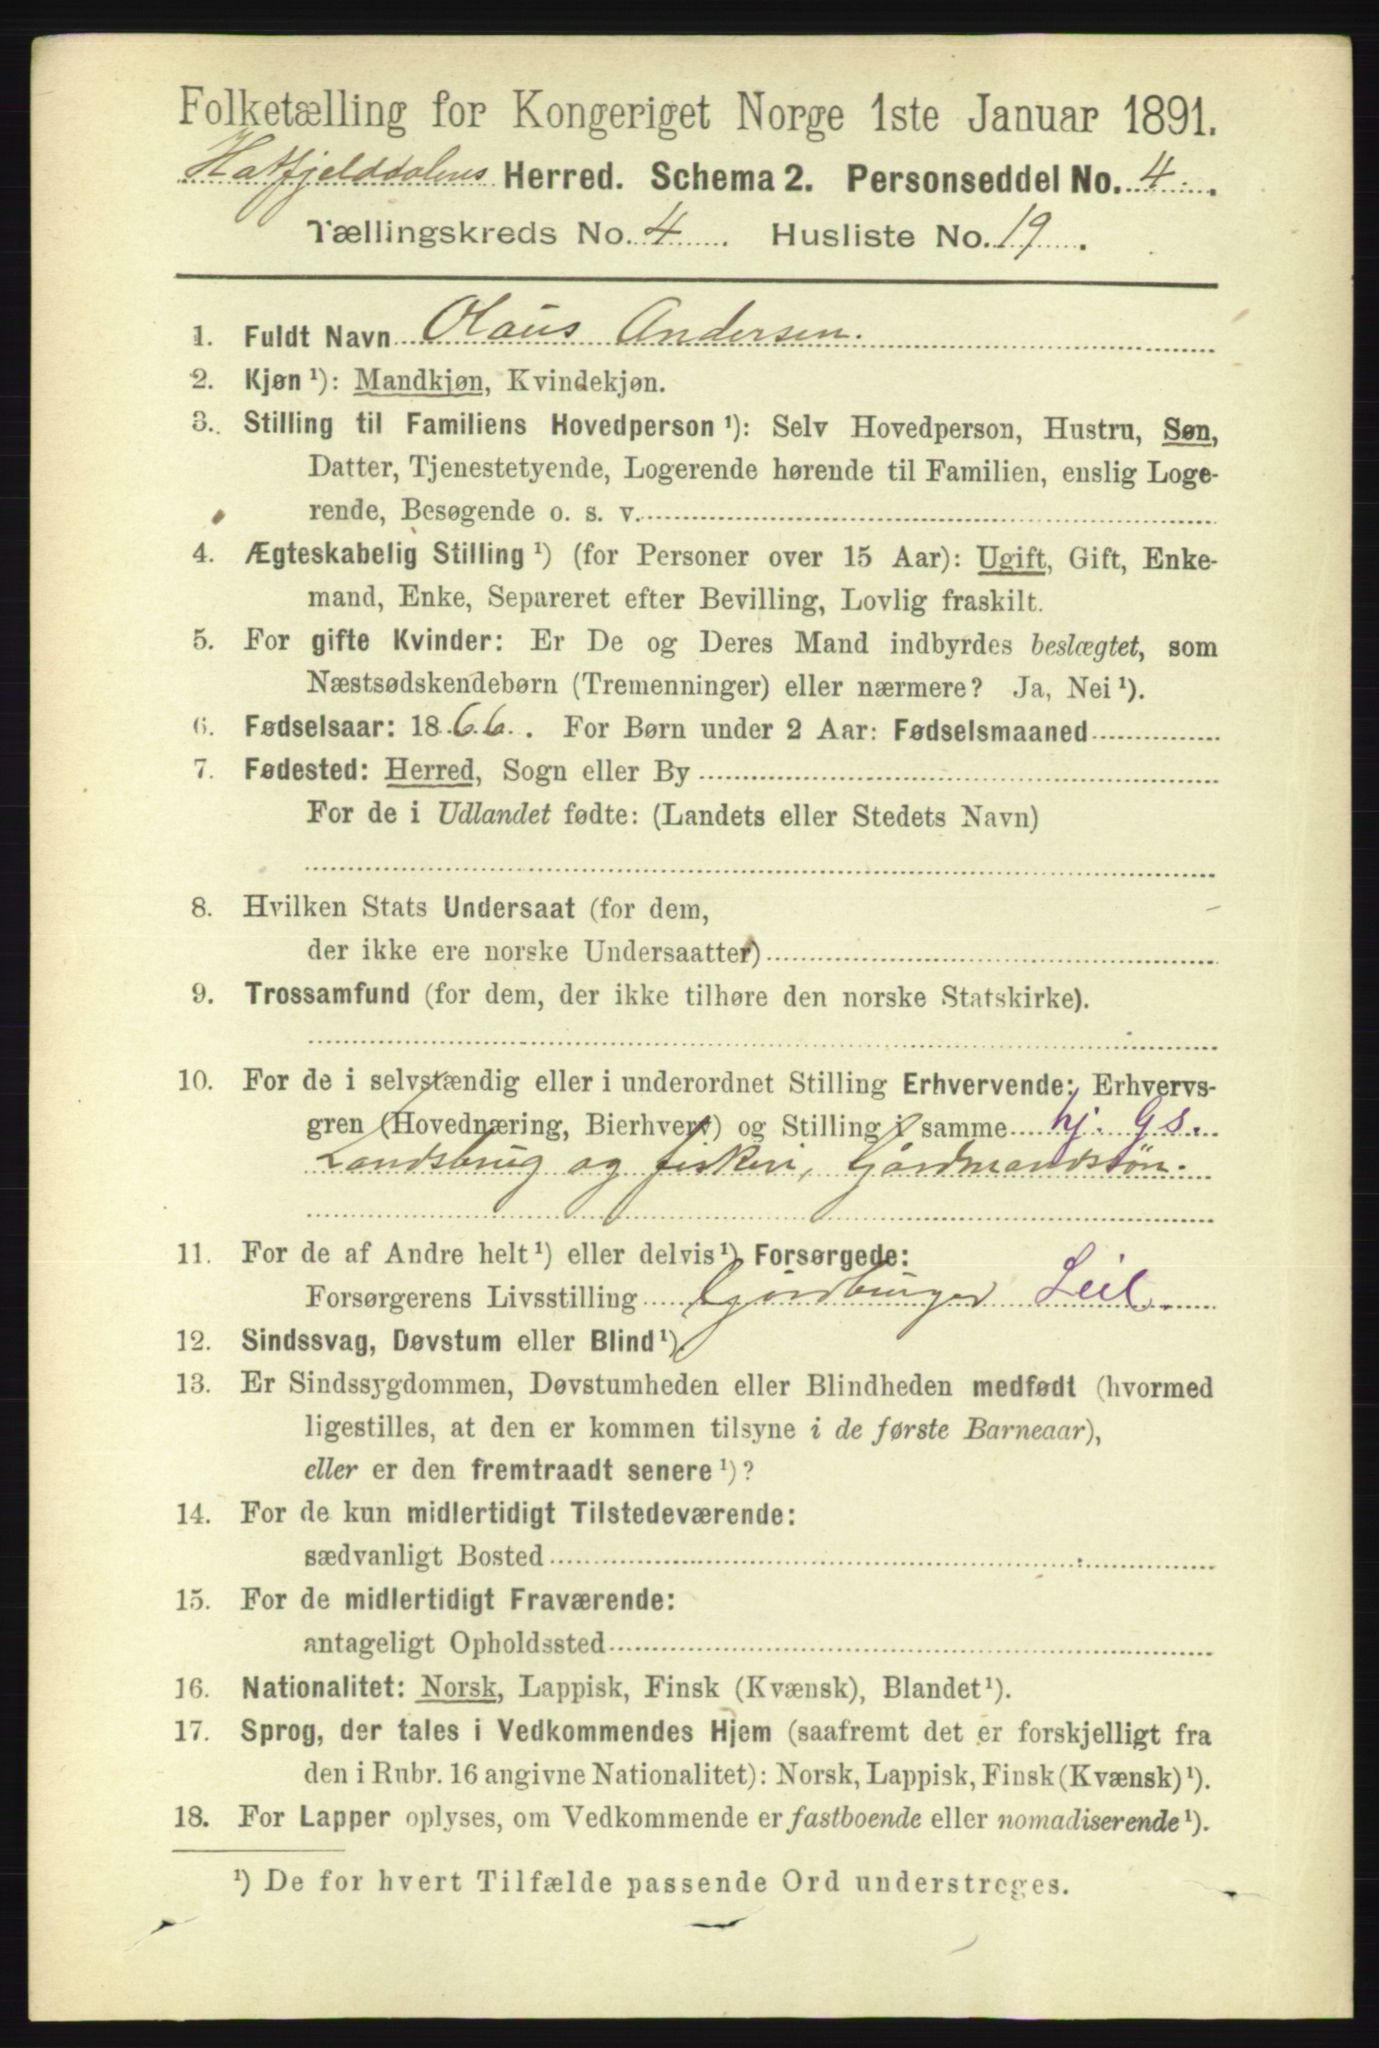 Folketælling for Kongeriget Norge 1ste Januar 1891.
Hatfjelddalens Herred. Schema 2. Personseddel No. 4.
Tællingskreds No. 4. Husliste No. 19.
1. Fuldt Navn Olaus Andersen.
2. Kjøn ¹): Mandkjøn, Kvindekjøn.
3. Stilling til Familiens Hovedperson ¹): Selv Hovedperson, Hustru, Søn,
Datter, Tjenestetyende, Logerende hørende til Familien, enslig Loge-
rende, Besøgende o. s. v.
4. Ægteskabelig Stilling ¹) (for Personer over 15 Aar): Ugift, Gift, Enke-
mand, Enke, Separeret efter Bevilling, Lovlig fraskilt.
5. For gifte Kvinder: Er De og Deres Mand indbyrdes beslægtet, som
Næstsødskendebørn (Tremenninger) eller nærmere? Ja, Nei ¹).
6. Fødselsaar: 1866. For Børn under 2 Aar: Fødselsmaaned
7. Fødested: Herred, Sogn eller By
For de i Udlandet fødte: (Landets eller Stedets Navn)
8. Hvilken Stats Undersaat (for dem,
der ikke ere norske Undersaatter)
9. Trossamfund (for dem, der ikke tilhøre den norske Statskirke).
10. For de i selvstændig eller i underordnet Stilling Erhvervende: Erhvervs-
gren (Hovednæring, Bierhverv) og Stilling i samme hj. Gs.
Landsbrug og fiskeri, Gårdmandssøn.
11. For de af Andre helt ¹) eller delvis ¹) Forsørgede:
Forsørgerens Livsstilling Gårdbruger Leil.
12. Sindssvag, Døvstum eller Blind ¹).
13. Er Sindssygdommen, Døvstumheden eller Blindheden medfødt (hvormed
ligestilles, at den er kommen tilsyne i de første Barneaar),
eller er den fremtraadt senere ¹)?
14. For de kun midlertidigt Tilstedeværende:
sædvanligt Bosted
15. For de midlertidigt Fraværende:
antageligt Opholdssted
16. Nationalitet: Norsk, Lappisk, Finsk (Kvænsk), Blandet ¹).
17. Sprog, der tales i Vedkommendes Hjem (saafremt det er forskjelligt fra
den i Rubr. 16 angivne Nationalitet): Norsk, Lappisk, Finsk (Kvænsk) ¹).
18. For Lapper oplyses, om Vedkommende er fastboende eller nomadiserende ¹).
¹) De for hvert Tilfælde passende Ord understreges.